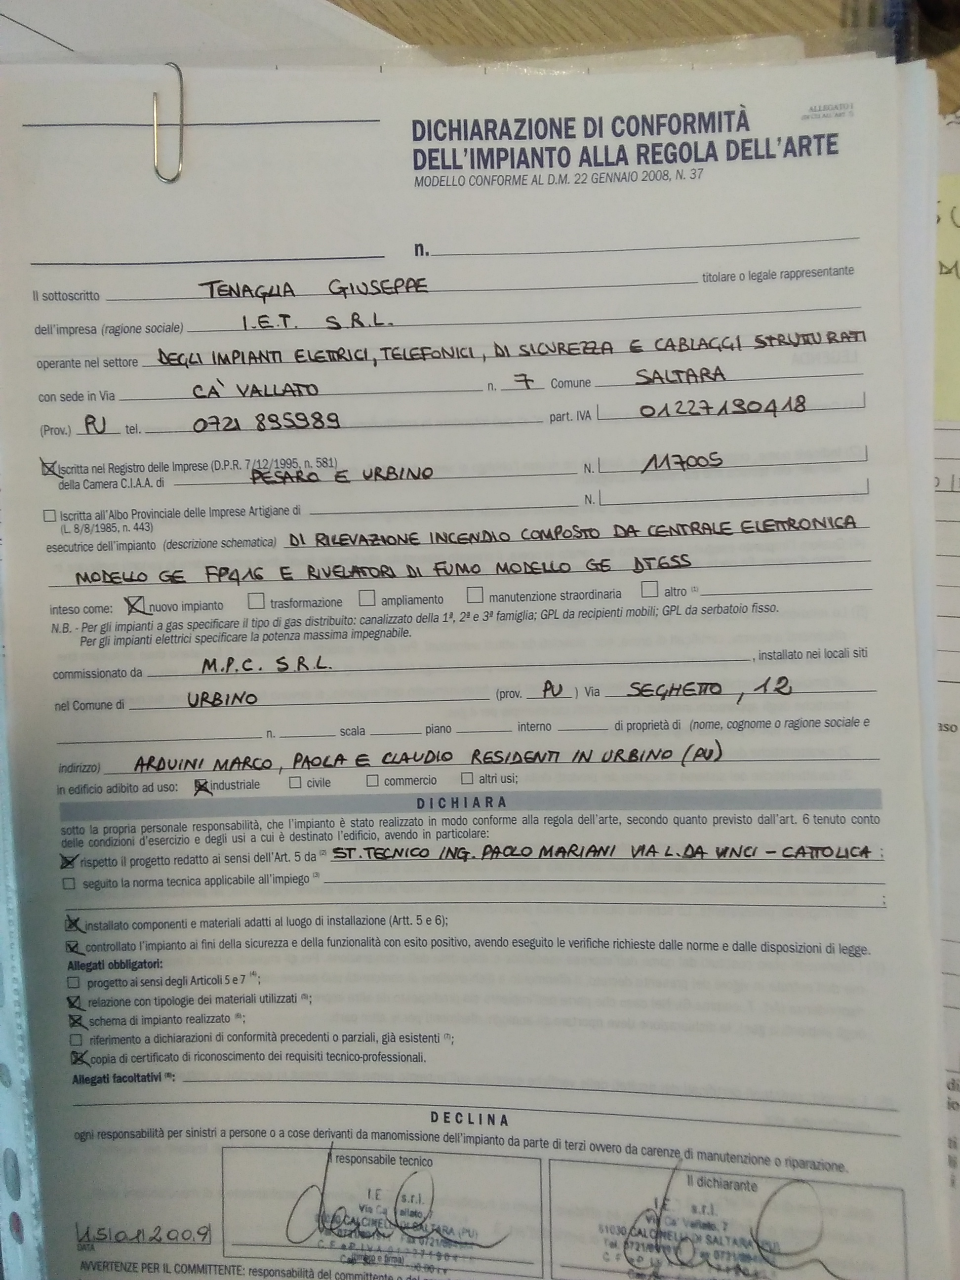 ALLEGATO I
DICHIARAZIONE DI CONFORMITÀ
DELL'IMPIANTO ALLA REGOLA DELL'ARTE
MODELLO CONFORME AL D.M. 22 GENNAIO 2008, N. 37
n.
Il sottoscritto TENAGLIA GIUSEPPE titolare o legale rappresentante
dell'impresa (ragione sociale) I.E.T. S.R.L.
operante nel settore DEGLI IMPIANTI ELETTRICI, TELEFONICI, DI SICUREZZA E CABLAGGI STRUTURATI
con sede in Via CA' VALLATO n. 7 Comune SALTARA
(Prov.) PU tel. 0721 895989 part. IVA 01227190418
Iscritta nel Registro delle Imprese (D.P.R. 7/12/1995, n. 581)
della Camera C.I.A.A. di PESARO E URBINO N. 117005
Iscritta all'Albo Provinciale delle Imprese Artigiane di N.
(L. 8/8/1985, n. 443)
esecutrice dell'impianto (descrizione schematica) DI RILEVAZIONE INCENDIO COMPOSTO DA CENTRALE ELETTRONICA
MODELLO GE FP416 E RIVELATORI DI FUMO MODELLO GE DT655
inteso come: nuovo impianto trasformazione ampliamento manutenzione straordinaria altro (1)
N.B. - Per gli impianti a gas specificare il tipo di gas distribuito: canalizzato della 1ª, 2ª e 3ª famiglia; GPL da recipienti mobili; GPL da serbatoio fisso.
Per gli impianti elettrici specificare la potenza massima impegnabile.
commissionato da M.P.C. S.R.L. , installato nei locali siti
nel Comune di URBINO (prov. PU ) Via SEGHETTO, 12
n. scala piano interno di proprietà di (nome, cognome o ragione sociale e
indirizzo) ARDUINI MARCO, PAOLA E CLAUDIO RESIDENTI IN URBINO (PU)
in edificio adibito ad uso: industriale civile commercio altri usi;
DICHIARA
sotto la propria personale responsabilità, che l'impianto è stato realizzato in modo conforme alla regola dell'arte, secondo quanto previsto dall'art. 6 tenuto conto
delle condizioni d'esercizio e degli usi a cui è destinato l'edificio, avendo in particolare:
rispetto il progetto redatto ai sensi dell'Art. 5 da (2) ST. TECNICO ING. PAOLO MARIANI VIA L. DA VINCI - CATTOLICA ;
seguito la norma tecnica applicabile all'impiego (3)
;
installato componenti e materiali adatti al luogo di installazione (Artt. 5 e 6);
controllato l'impianto ai fini della sicurezza e della funzionalità con esito positivo, avendo eseguito le verifiche richieste dalle norme e dalle disposizioni di legge.
Allegati obbligatori:
progetto ai sensi degli Articoli 5 e 7 (4);
relazione con tipologie dei materiali utilizzati (5);
schema di impianto realizzato (6);
riferimento a dichiarazioni di conformità precedenti o parziali, già esistenti (7);
copia di certificato di riconoscimento dei requisiti tecnico-professionali.
Allegati facoltativi (8):
DECLINA
ogni responsabilità per sinistri a persone o a cose derivanti da manomissione dell'impianto da parte di terzi ovvero da carenze di manutenzione o riparazione.
Il responsabile tecnico Il dichiarante
DATA
AVVERTENZE PER IL COMMITTENTE: responsabilità del committente o del